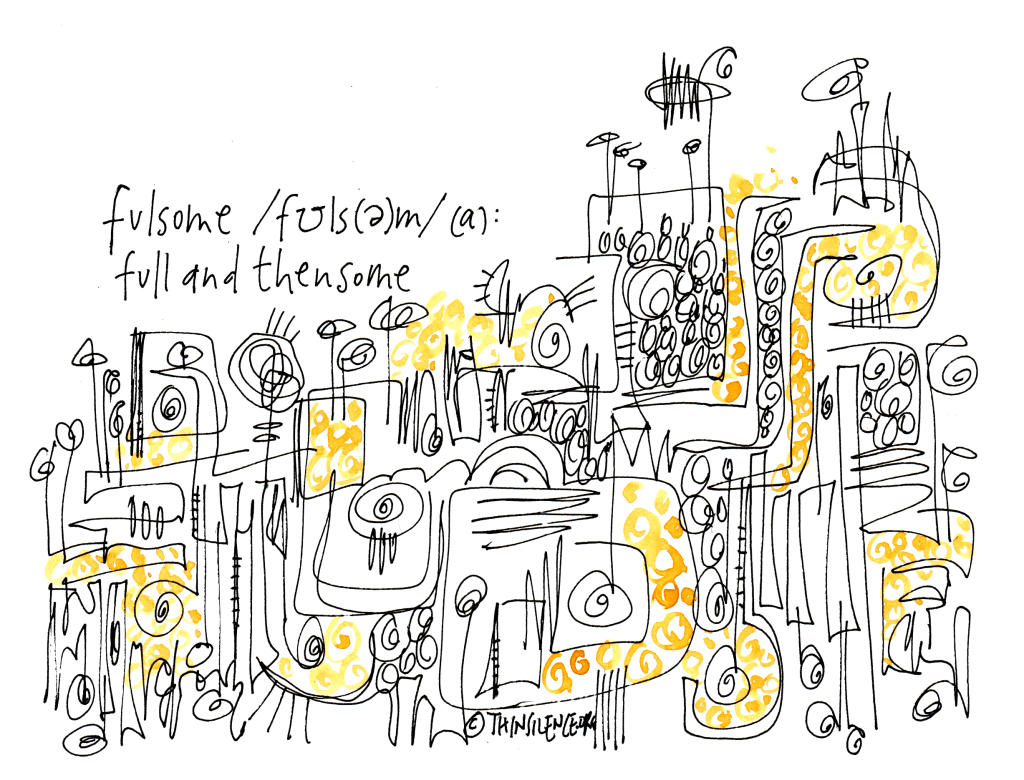 fulsome /fʊls(ə)m/ (a):
full and thensome
© THINSILENCE.ORG